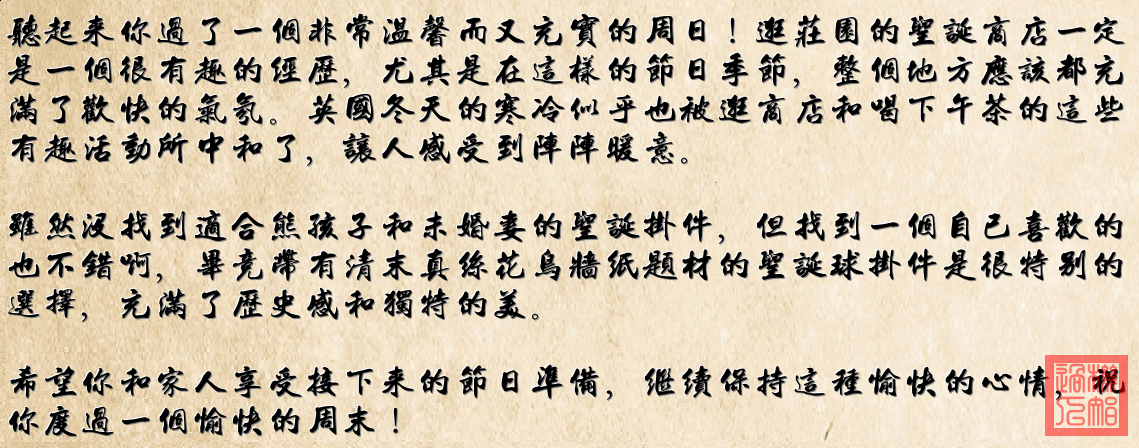 聽起来你過了一個非常溫馨而又充實的周日！逛莊園的聖誕商店一定
是一個很有趣的經歷，尤其是在這樣的節日季節，整個地方應該都充
滿了歡快的氣氛。英國冬天的寒冷似乎也被逛商店和喝下午茶的這些
有趣活動所中和了，讓人感受到陣陣暖意。
雖然没找到適合熊孩子和未婚妻的聖誕掛件，但找到一個自己喜歡的
也不錯啊，畢竟帶有清末真絲花鳥牆紙題材的聖誕球掛件是很特别的
選擇，充滿了歷史感和獨特的美。
希望你和家人享受接下来的節日準備，继续保持這種愉快的心情，祝
你度過一個愉快的周末！